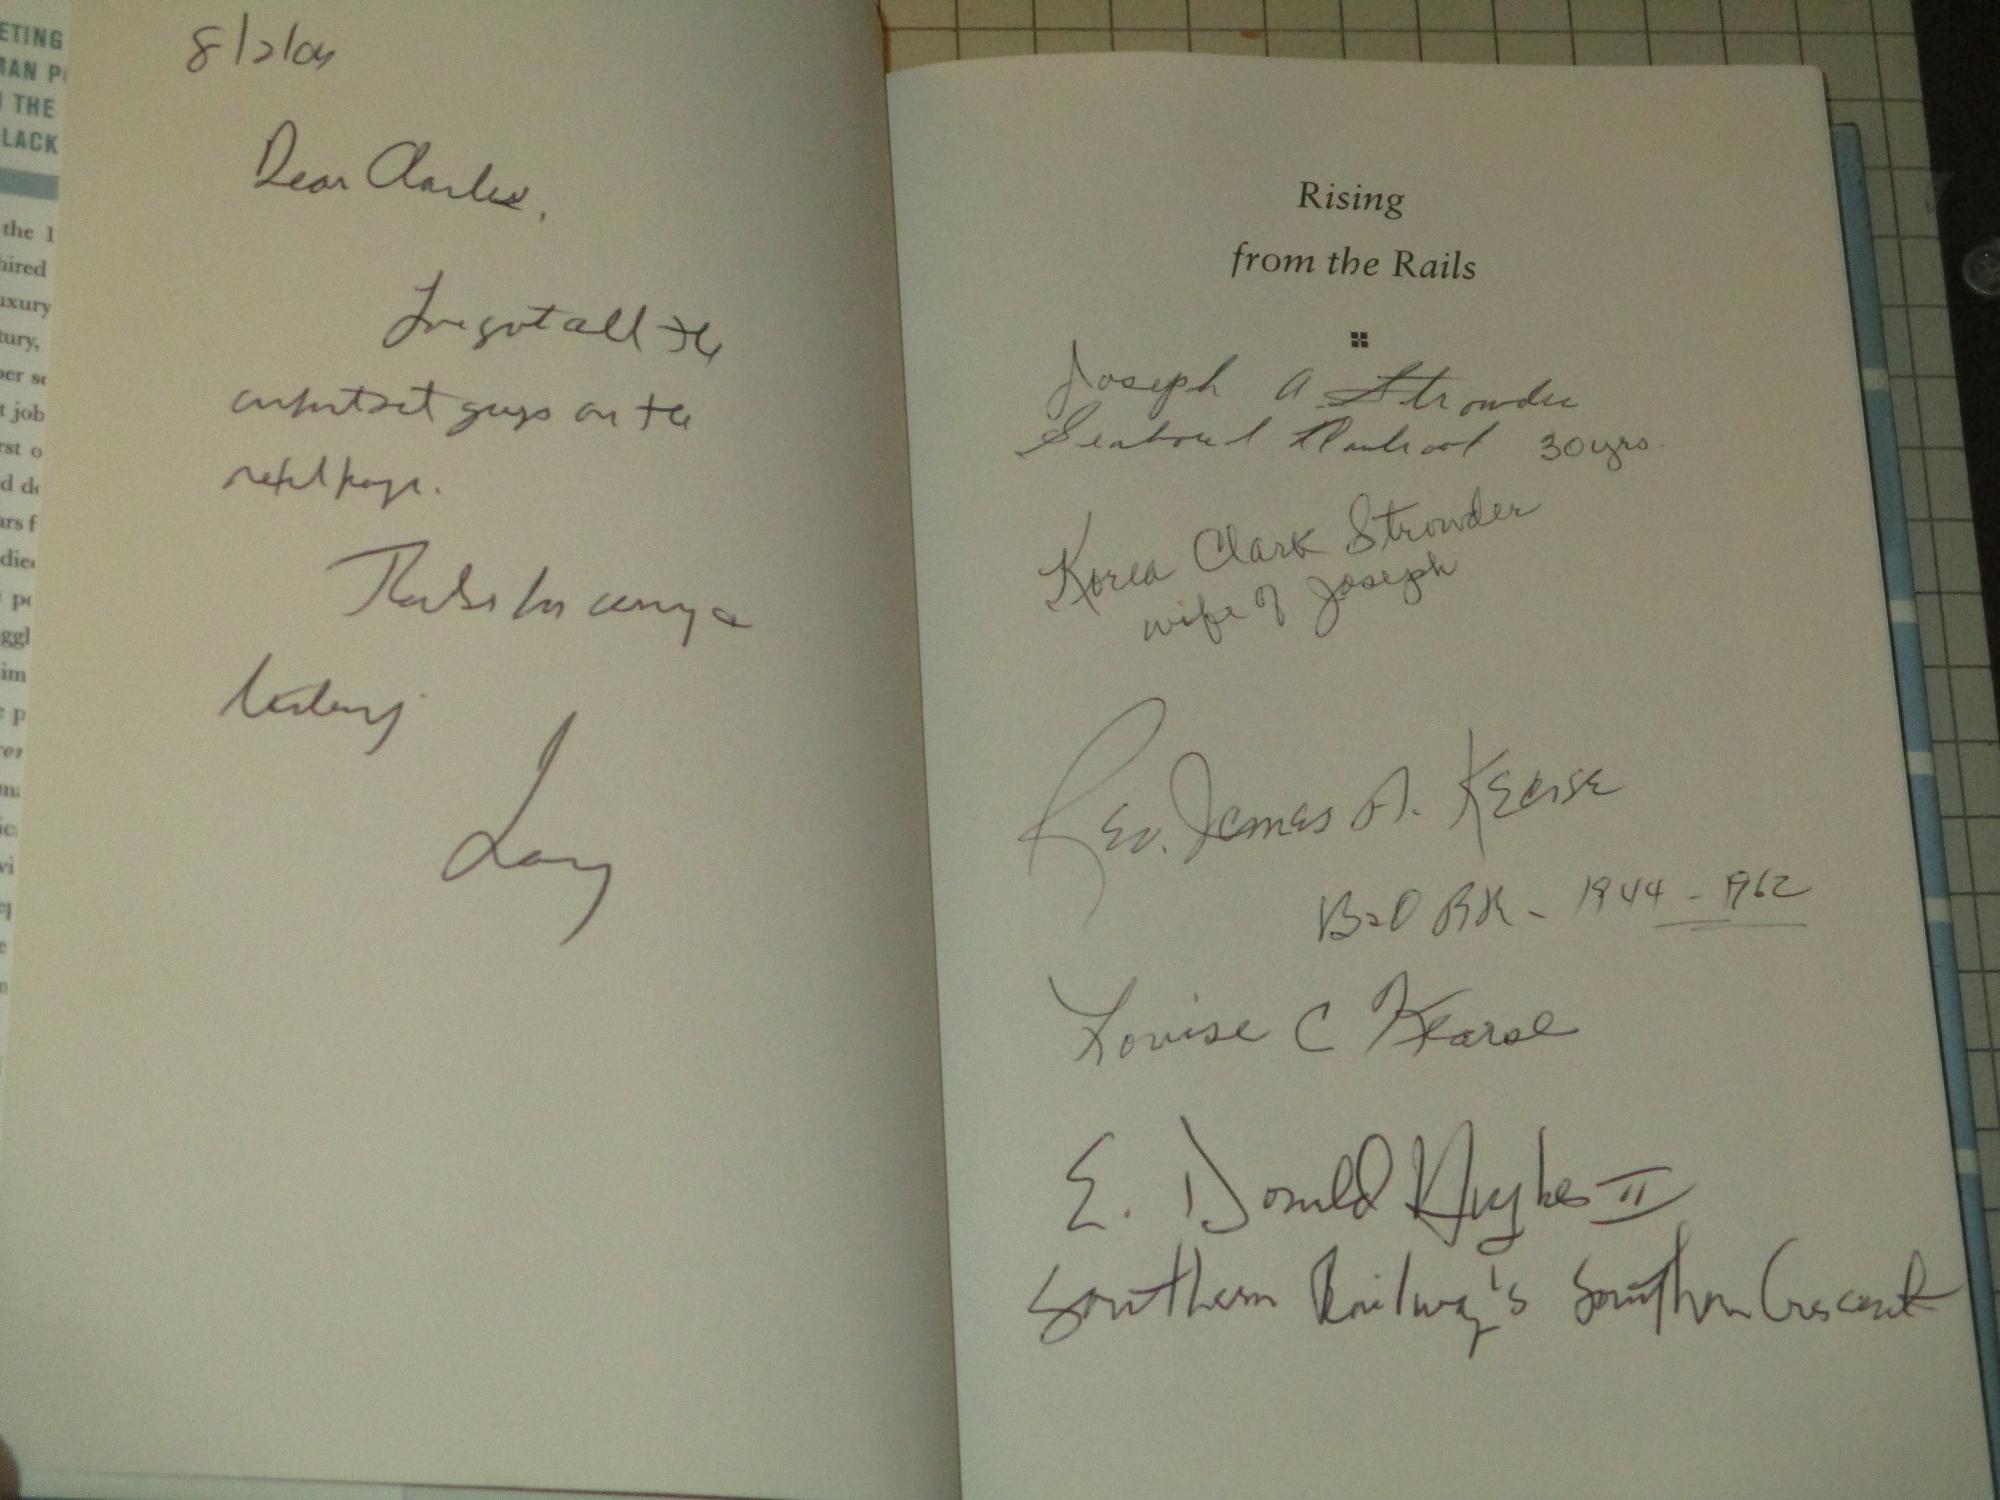 ETING
MAN P
THE
LACK
the 1
hired
uxury
tury,
per so
t job
rst o
d de
ars f
died
po
ggl
im
e p
8/2/04
Dear Charles,
I've got all the
important guys on the
page.
Thanks for
Larry
Rising
from the Rails
Joseph A Strowder
Seaboard Railroad 30 yrs.
Korea Clark Strowder
wife of Joseph
Rev. James A. Kearse
B&O RR - 1944 - 1962
Louise C Kearse
E. Donald Hughes II
Southern Railway's Southern Crescent